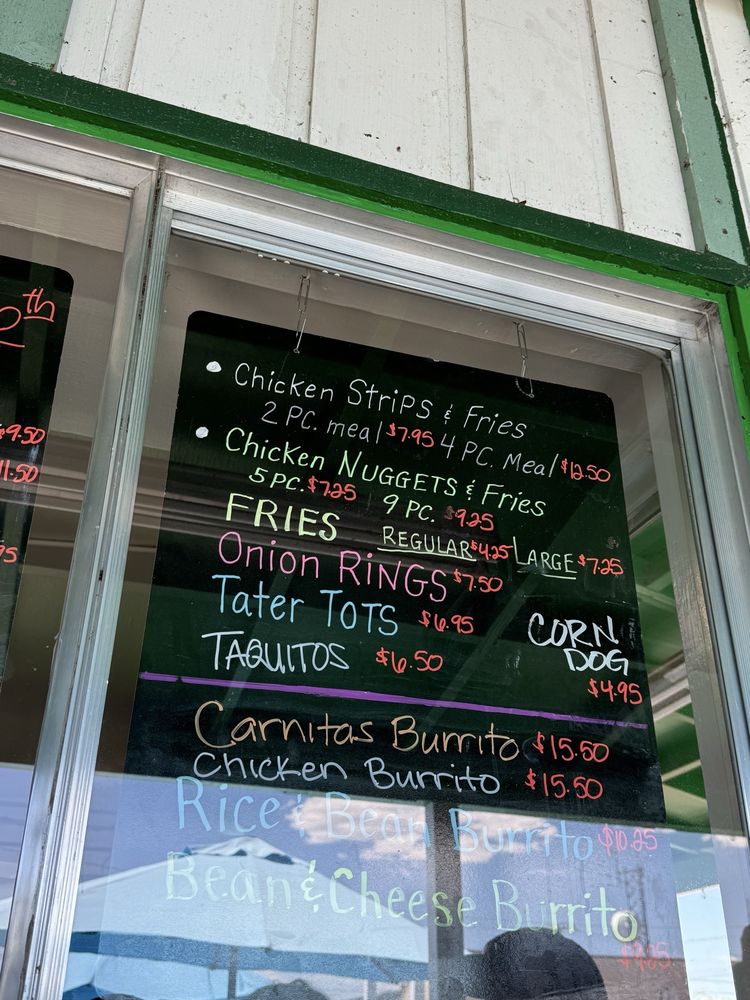 th
$9.50
11.50
• Chicken Strips & Fries
2 PC. meal $7.95 4 PC. Meal $12.50
• Chicken NUGGETS & Fries
5 PC. $7.25 9 PC. $9.25
FRIES REGULAR $4.25 LARGE $7.25
Onion RiNGS $7.50
Tater TOTS $6.95
TAQUITOS $6.50
CORN DOG
$4.95
Carnitas Burrito $15.50
Chicken Burrito $15.50
Rice & Bean Burrito $10.25
Bean & Cheese Burrito